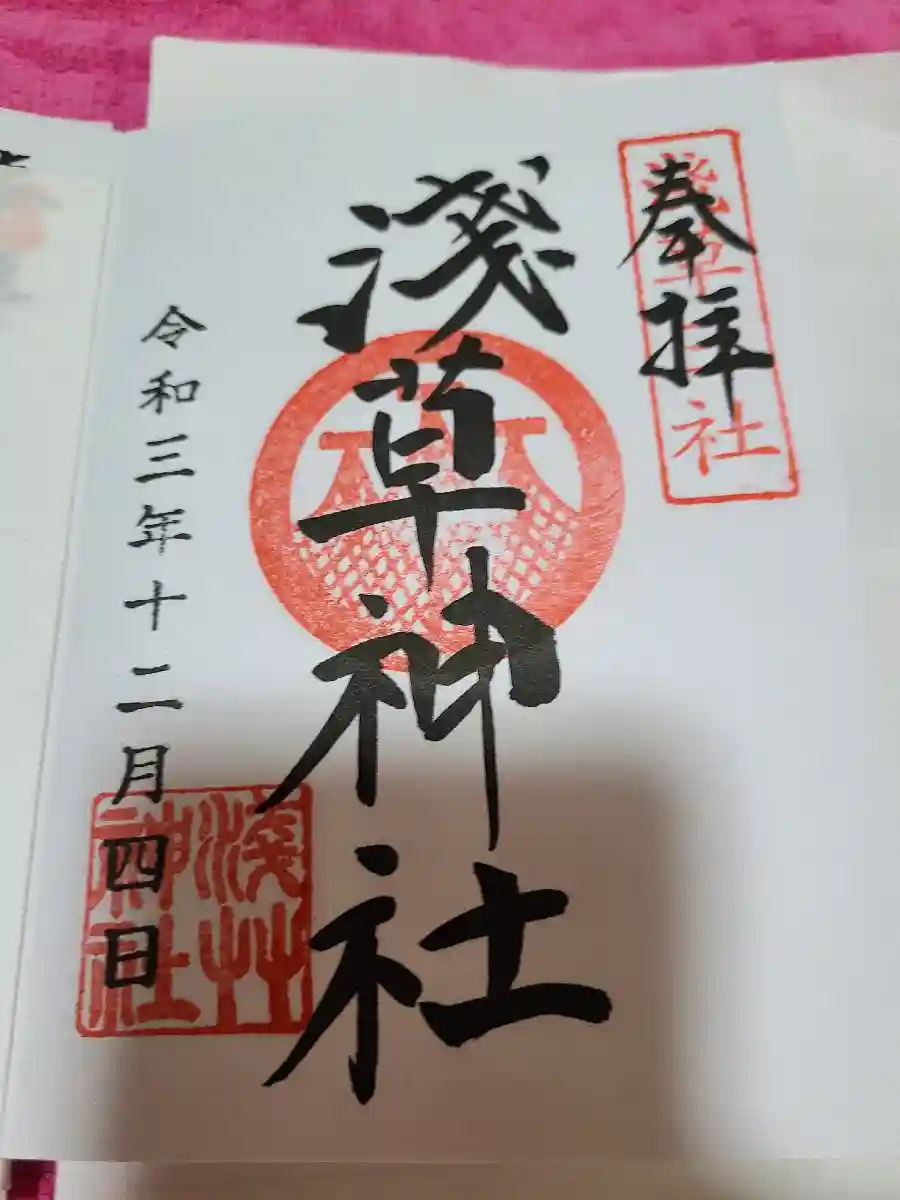 奉拝
淺草神社
淺草神社
令和三年十二月四日
淺草
神社